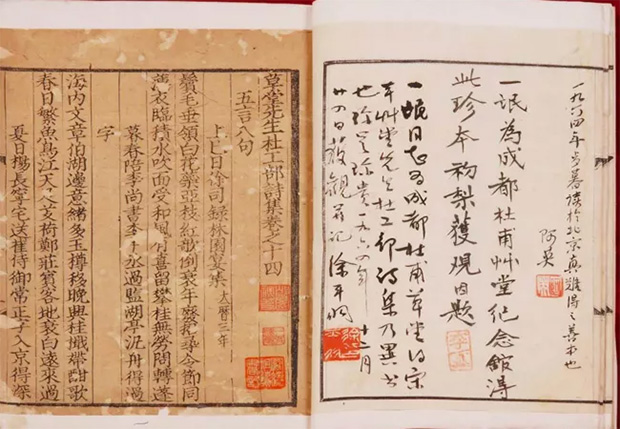 一九六四年歲暮讀於北京真難得之善本也
阿英
一氓為成都杜甫艸堂纪念館得
此珍本初梨獲观因題
一氓同志为成都杜甫草堂得宋
本艸堂先生杜工部诗集乃異书
也 珍贵一九六四年十二月
廿四日获觀并记徐平羽
草堂先生杜工部詩集卷之十四
五言八句
上巳日徐司録林園宴集 大曆三年
鬢毛垂領白花蘂亞枝紅欹倒衰年廢招尋令節同
薄衣臨積水吹面受和風有喜留攀桂無勞問轉蓬
暮春陪李尚書李中丞過鄭監湖亭汎舟得過
字
海内文章伯湖邊意緒多玉樽移晚興桂檝帶酣歌
春日繁魚鳥江天足芰荷鄭莊賓客地衰白遠來過
夏日楊長寧宅送崔侍御常正字入京得深